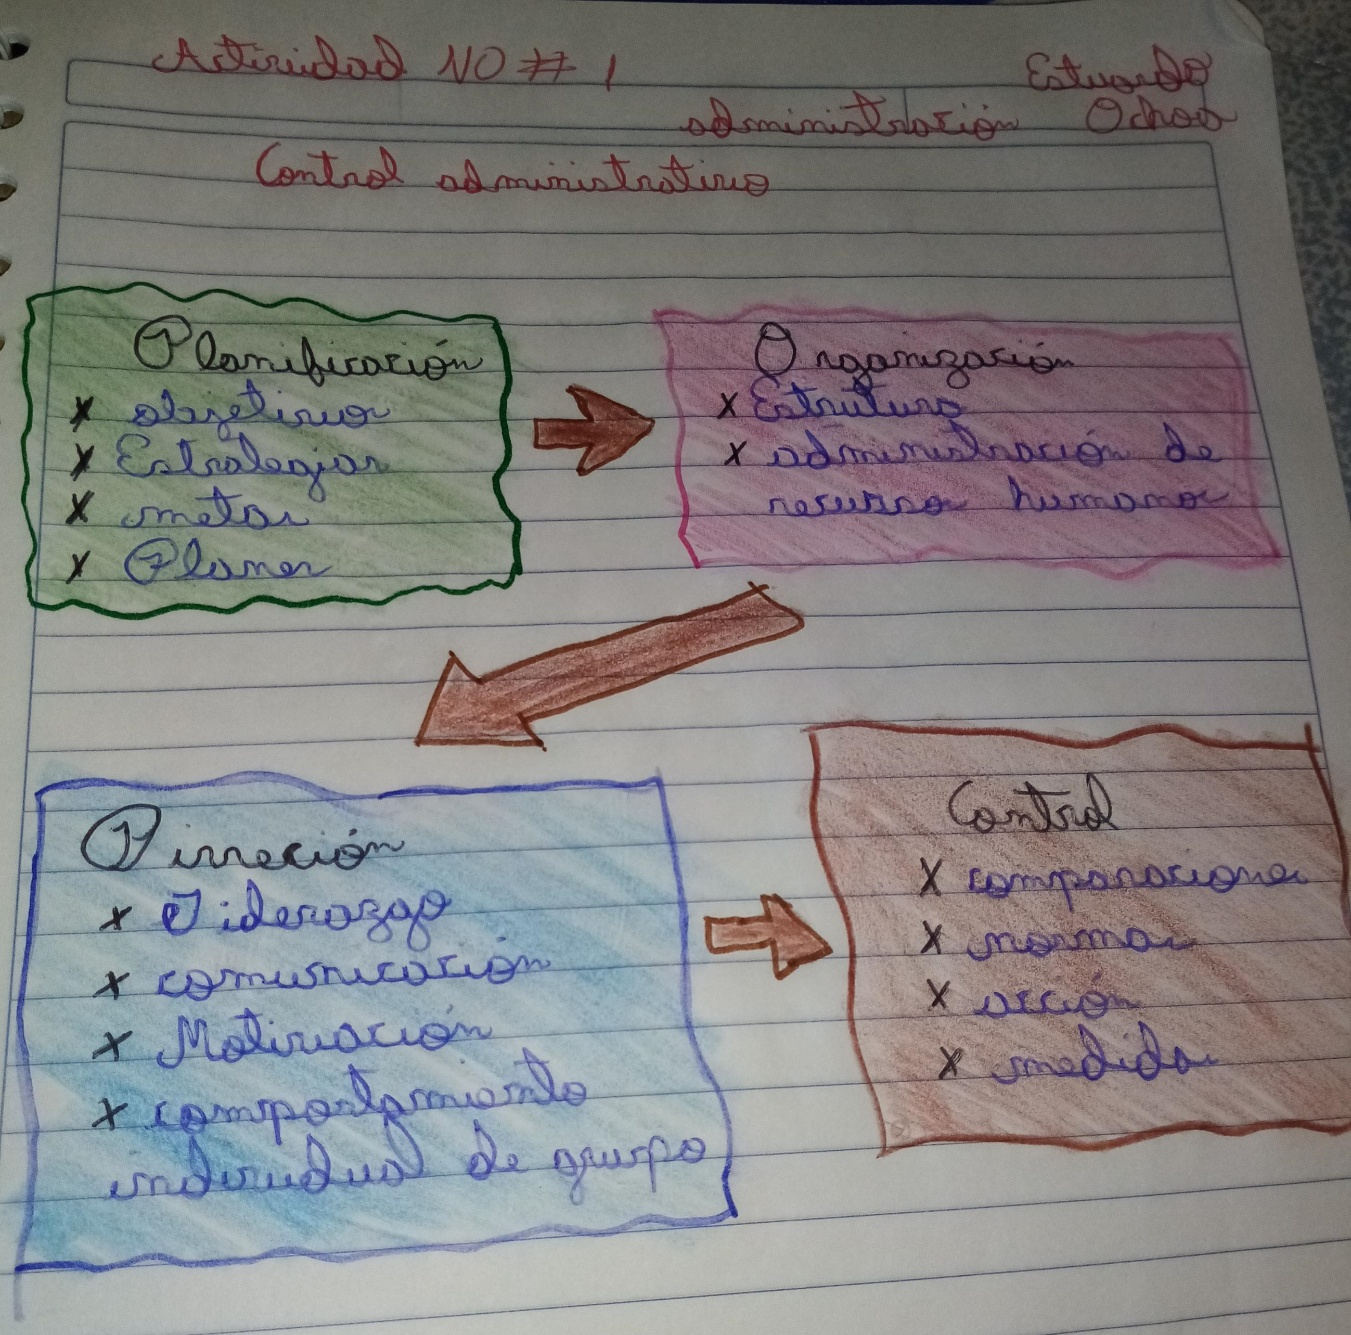 Actividad NO # 1
Estuardo
administración Ochoa
Control administrativo
Planificación
x objetivos
x Estrategias
x metas
x Planes
Organización
x Estrutura
x administración de
recursos humanos
Direción
x Liderazgo
x comunicación
x Motivación
x comportamiento
individual de grupo
Control
x comparaciones
x normas
x acción
x medidas